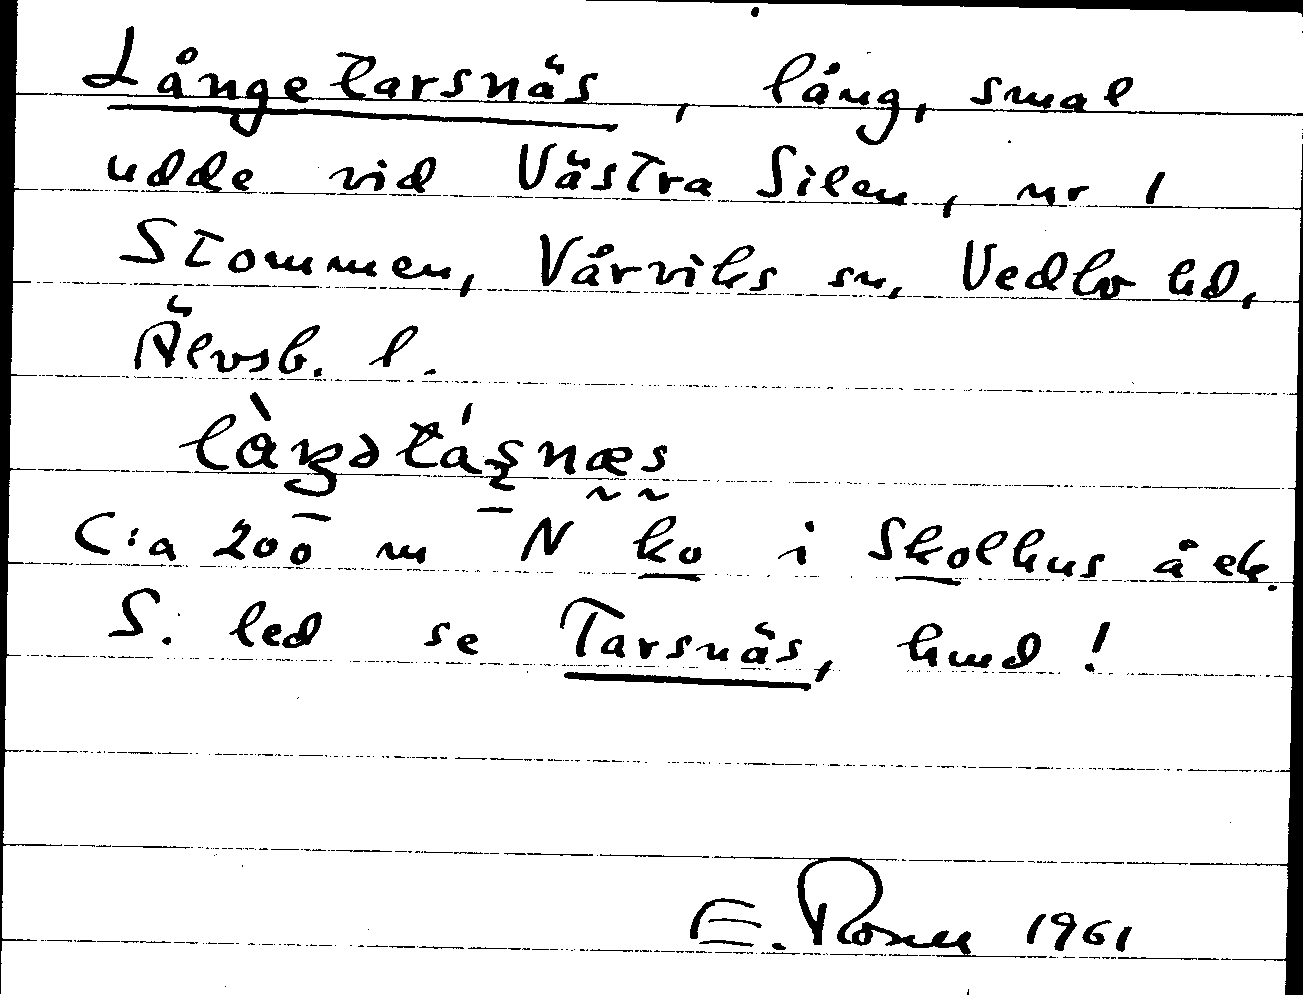 Långetarsnäs, lång, smal
udde vid Västra Silen, nr 1
Stommen, Vårviks sn, Vedbo hd,
Älvsb. l.
C:a 200 m N ko i Skolhus å ek.
S. led se Tarsnäs, hmd!
E. 1961